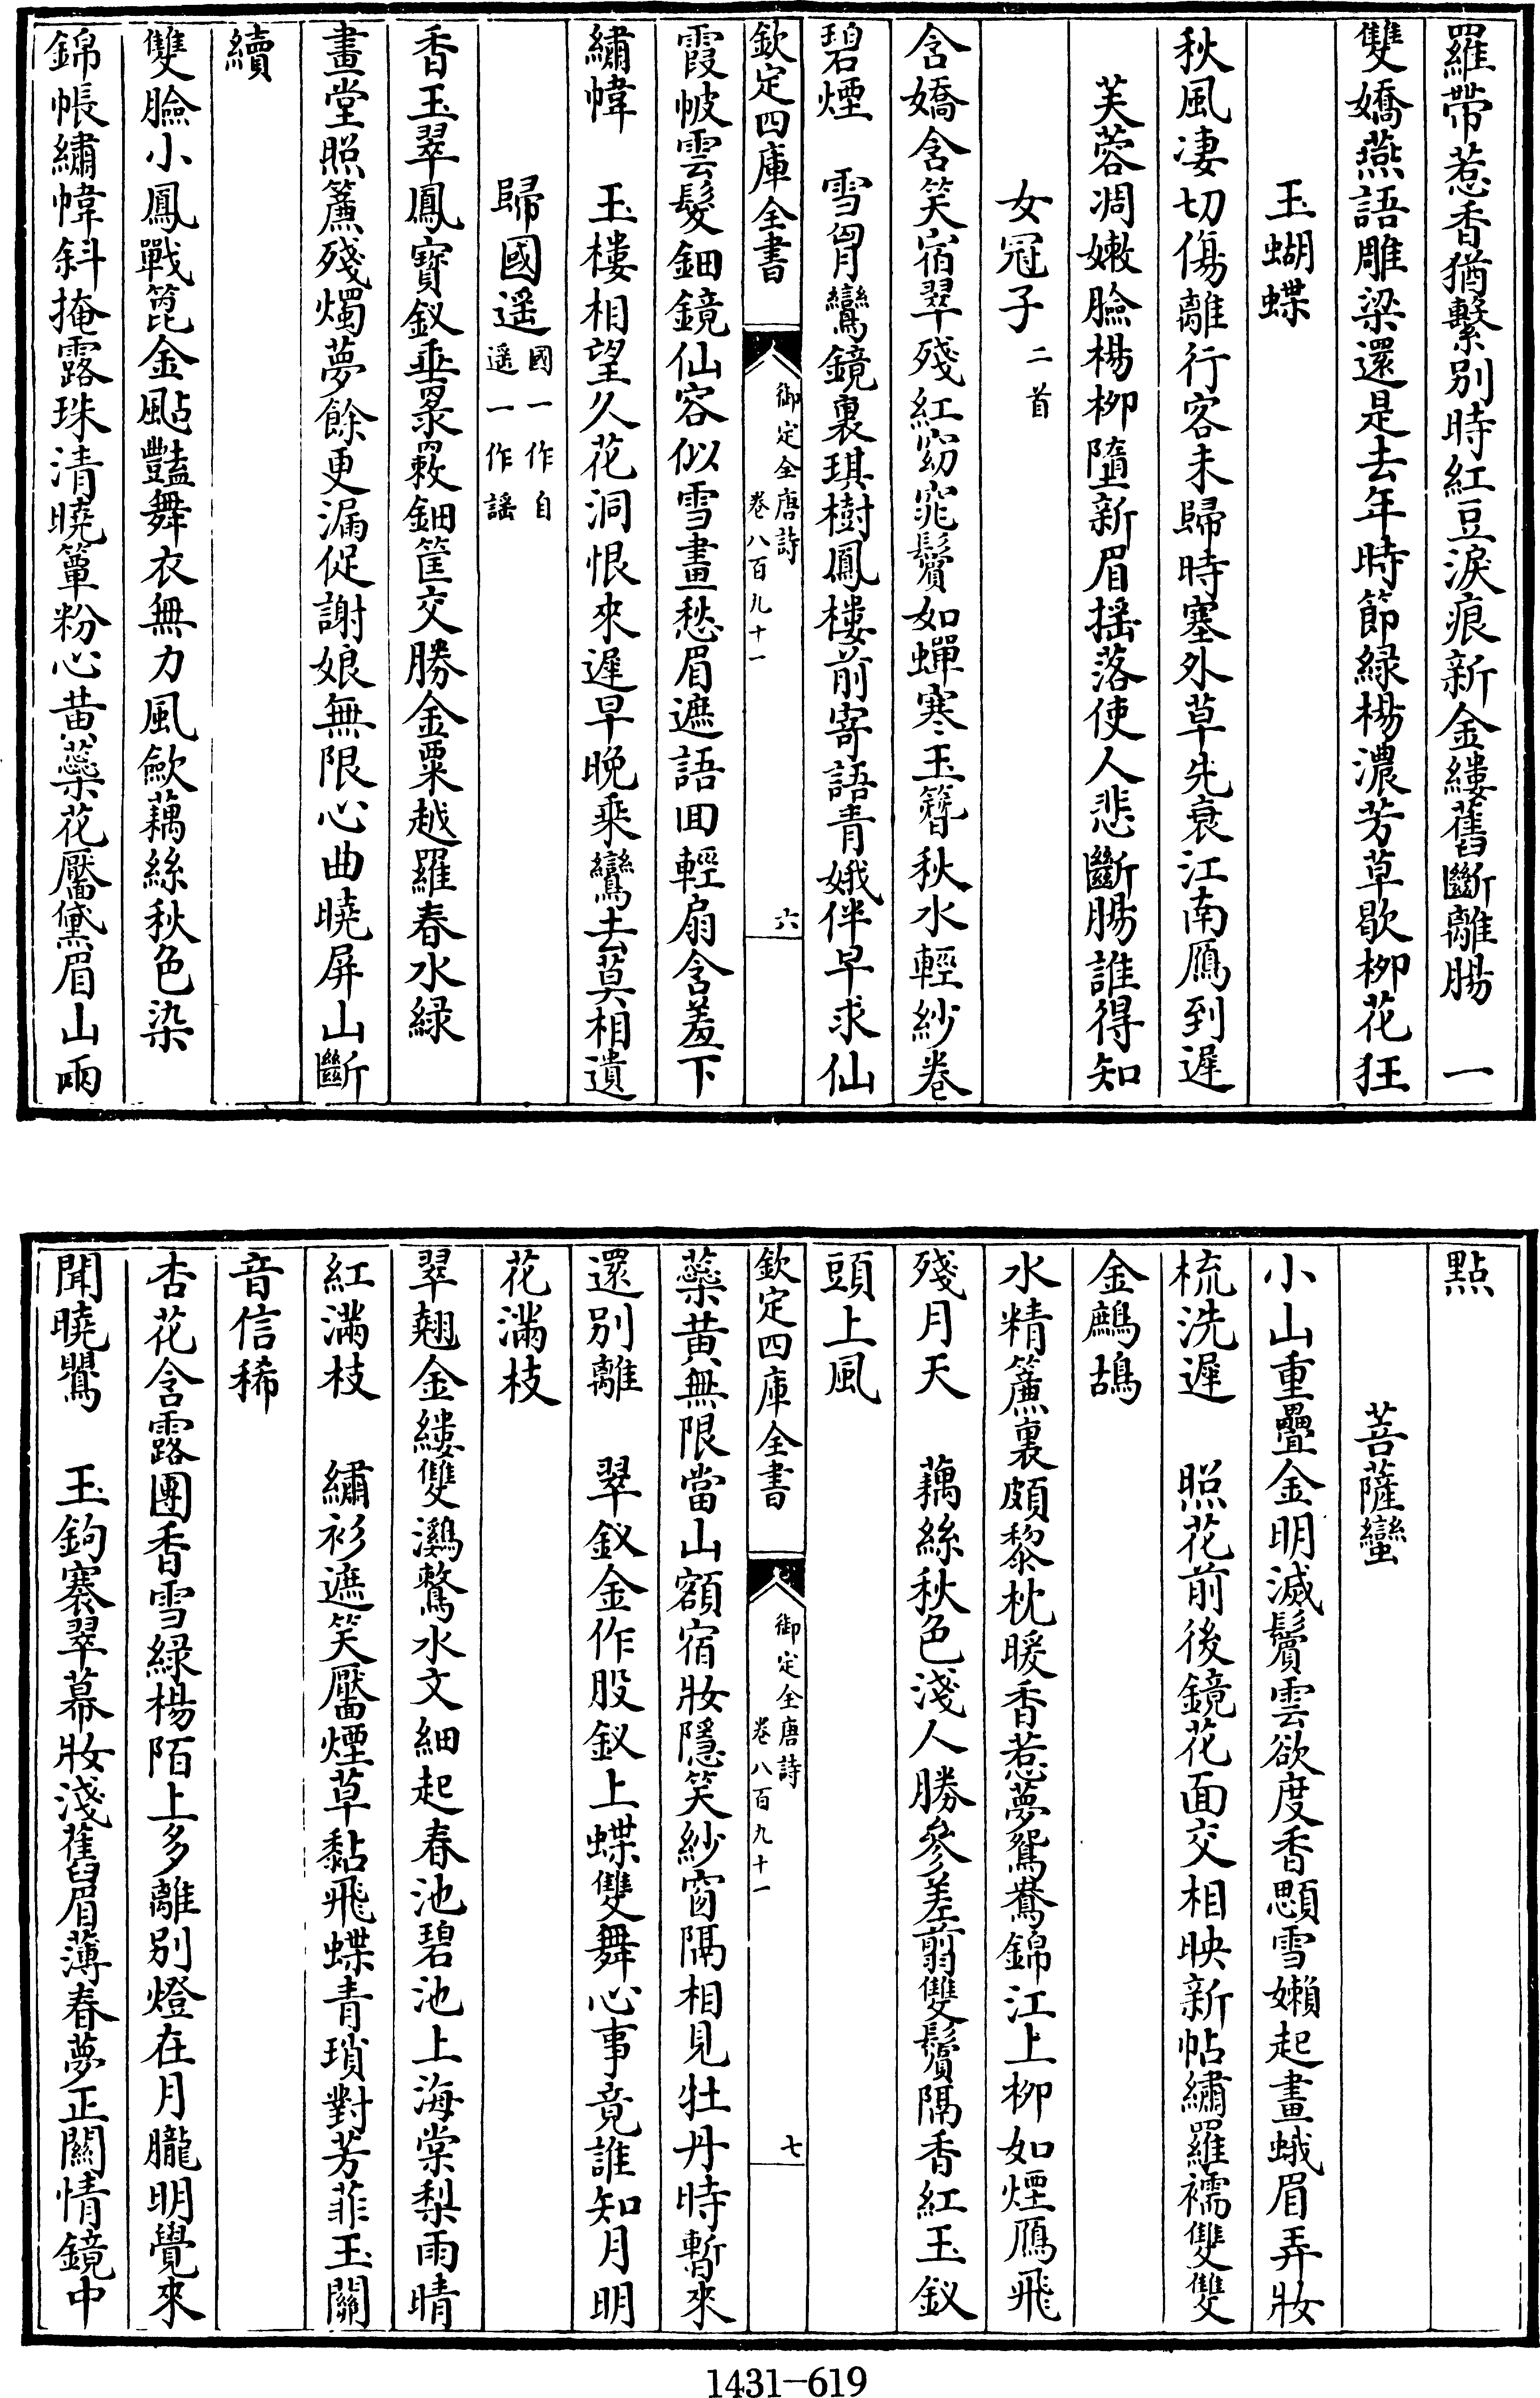 羅帶惹香猶繫別時紅豆淚痕新金縷舊斷離腸　一
雙嬌燕語雕梁還是去年時節緑楊濃芳草歇柳花狂
玉蝴蝶
秋風凄切傷離行客未歸時塞外草先衰江南鴈到遲
芙蓉凋嫩臉楊柳墮新眉揺落使人悲斷腸誰得知
女冠子二首
含嬌含笑宿翠殘紅窈窕鬢如蟬寒玉簪秋水輕紗卷
碧煙　雪胷鸞鏡裏琪樹鳳樓前寄語青娥伴早求仙
欽定四庫全書　御定全唐詩卷八百九十一　六
霞帔雲髮鈿鏡仙容似雪畫愁眉遮語囬輕扇含羞下
繡幃　玉樓相望久花洞恨來遲早晩乗鸞去莫相遺
歸國遥國一作自遥一作謡
香玉翠鳳寶釵垂䍡䍥鈿筐交勝金粟越羅春水緑
畫堂照簾殘燭夢餘更漏促謝娘無限心曲曉屏山斷
續
雙臉小鳳戰箆金颭豔舞衣無力風歛藕絲秋色染
錦帳繡幃斜掩露珠清曉簟粉心黄蘂花靨黛眉山兩
點
菩薩蠻
小山重疊金明滅鬢雲欲度香顋雪嬾起畫蛾眉弄妝
梳洗遲　照花前後鏡花面交相映新帖繡羅襦雙雙
金鷓鴣
水精簾裏頗黎枕暖香惹夢鴛鴦錦江上柳如煙鴈飛
殘月天　藕絲秋色淺人勝參差剪雙鬢隔香紅玉釵
頭上風
欽定四庫全書　御定全唐詩卷八百九十一　七
蘂黄無限當山額宿妝隱笑紗窗隔相見牡丹時暫來
還別離　翠釵金作股釵上蝶雙舞心事竟誰知月明
花滿枝
翠翹金縷雙鸂鶒水文細起春池碧池上海棠梨雨晴
紅滿枝　繡衫遮笑靨煙草黏飛蝶青瑣對芳菲玉關
音信稀
杏花含露團香雪緑楊陌上多離別燈在月朧明覺來
聞曉鸎　玉鉤褰翠幕妝淺舊眉薄春夢正關情鏡中
1431-619